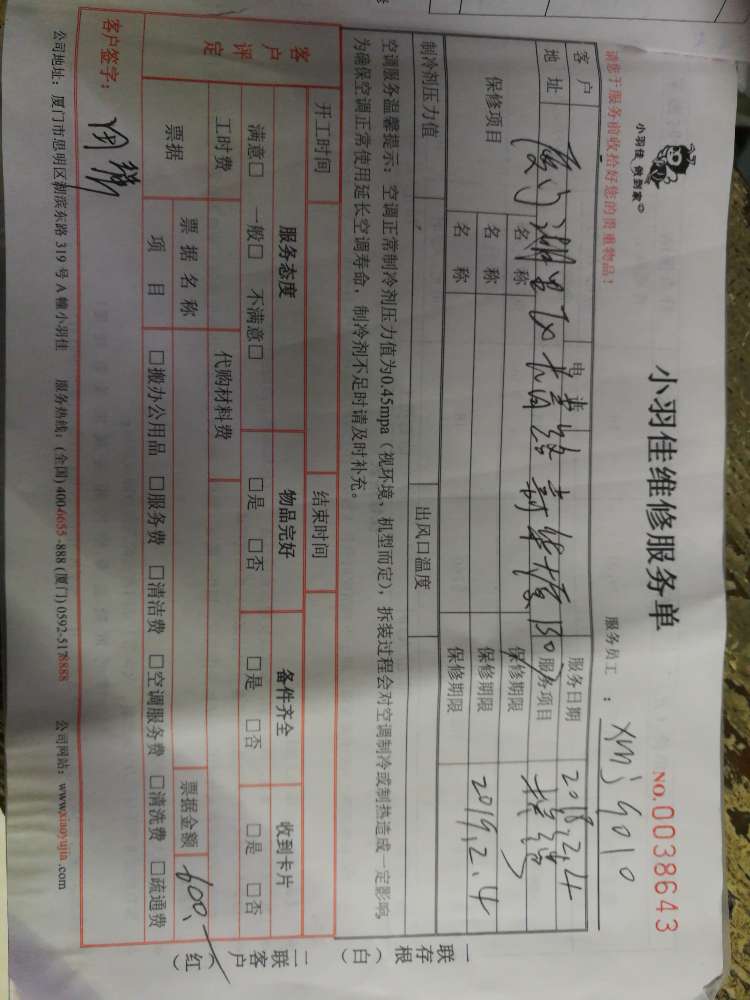 小羽佳 做到家
小羽佳维修服务单
NO.0038643
请您于服务前收拾好您的贵重物品！
服务员工：xmj9010
客户 电话 服务日期 2018.2.4
地址 服务项目
保修项目 名称 保修期限
名称 保修期限
名称 保修期限 2019.2.4
制冷剂压力值 出风口温度
空调服务温馨提示：空调正常制冷剂压力值为0.45mpa（视环境、机型而定），拆装过程会对空调制冷或制热造成一定影响，
为确保空调正常使用延长空调寿命，制冷剂不足时请及时补充。
开工时间 结束时间
客户评定 服务态度 物品完好 备件齐全 收到卡片
满意□ 一般□ 不满意□ □是 □否 □是 □否 □是 □否
工时费 代购材料费
票据 票据名称 票据金额 600.
项目 □搬办公用品 □服务费 □清洁费 □空调服务费 □清洗费 □疏通费
客户签字：
公司地址：厦门市思明区湖滨东路 319 号 A 幢小羽佳 服务热线：(全国) 400-6655-888 (厦门) 0592-5178888 公司网站：www.xiaoyujia.com
一联存根（白）
二联客户（红）